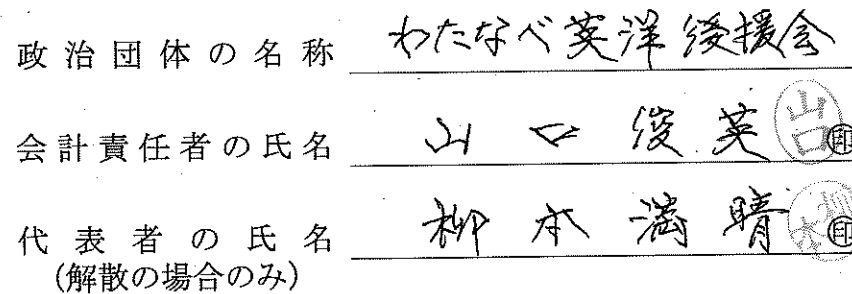 政治団体の名称 わたなべ英洋後援会
会計責任者の氏名 山口俊英 山口 印
代表者の氏名 柳本満晴 印
(解散の場合のみ)